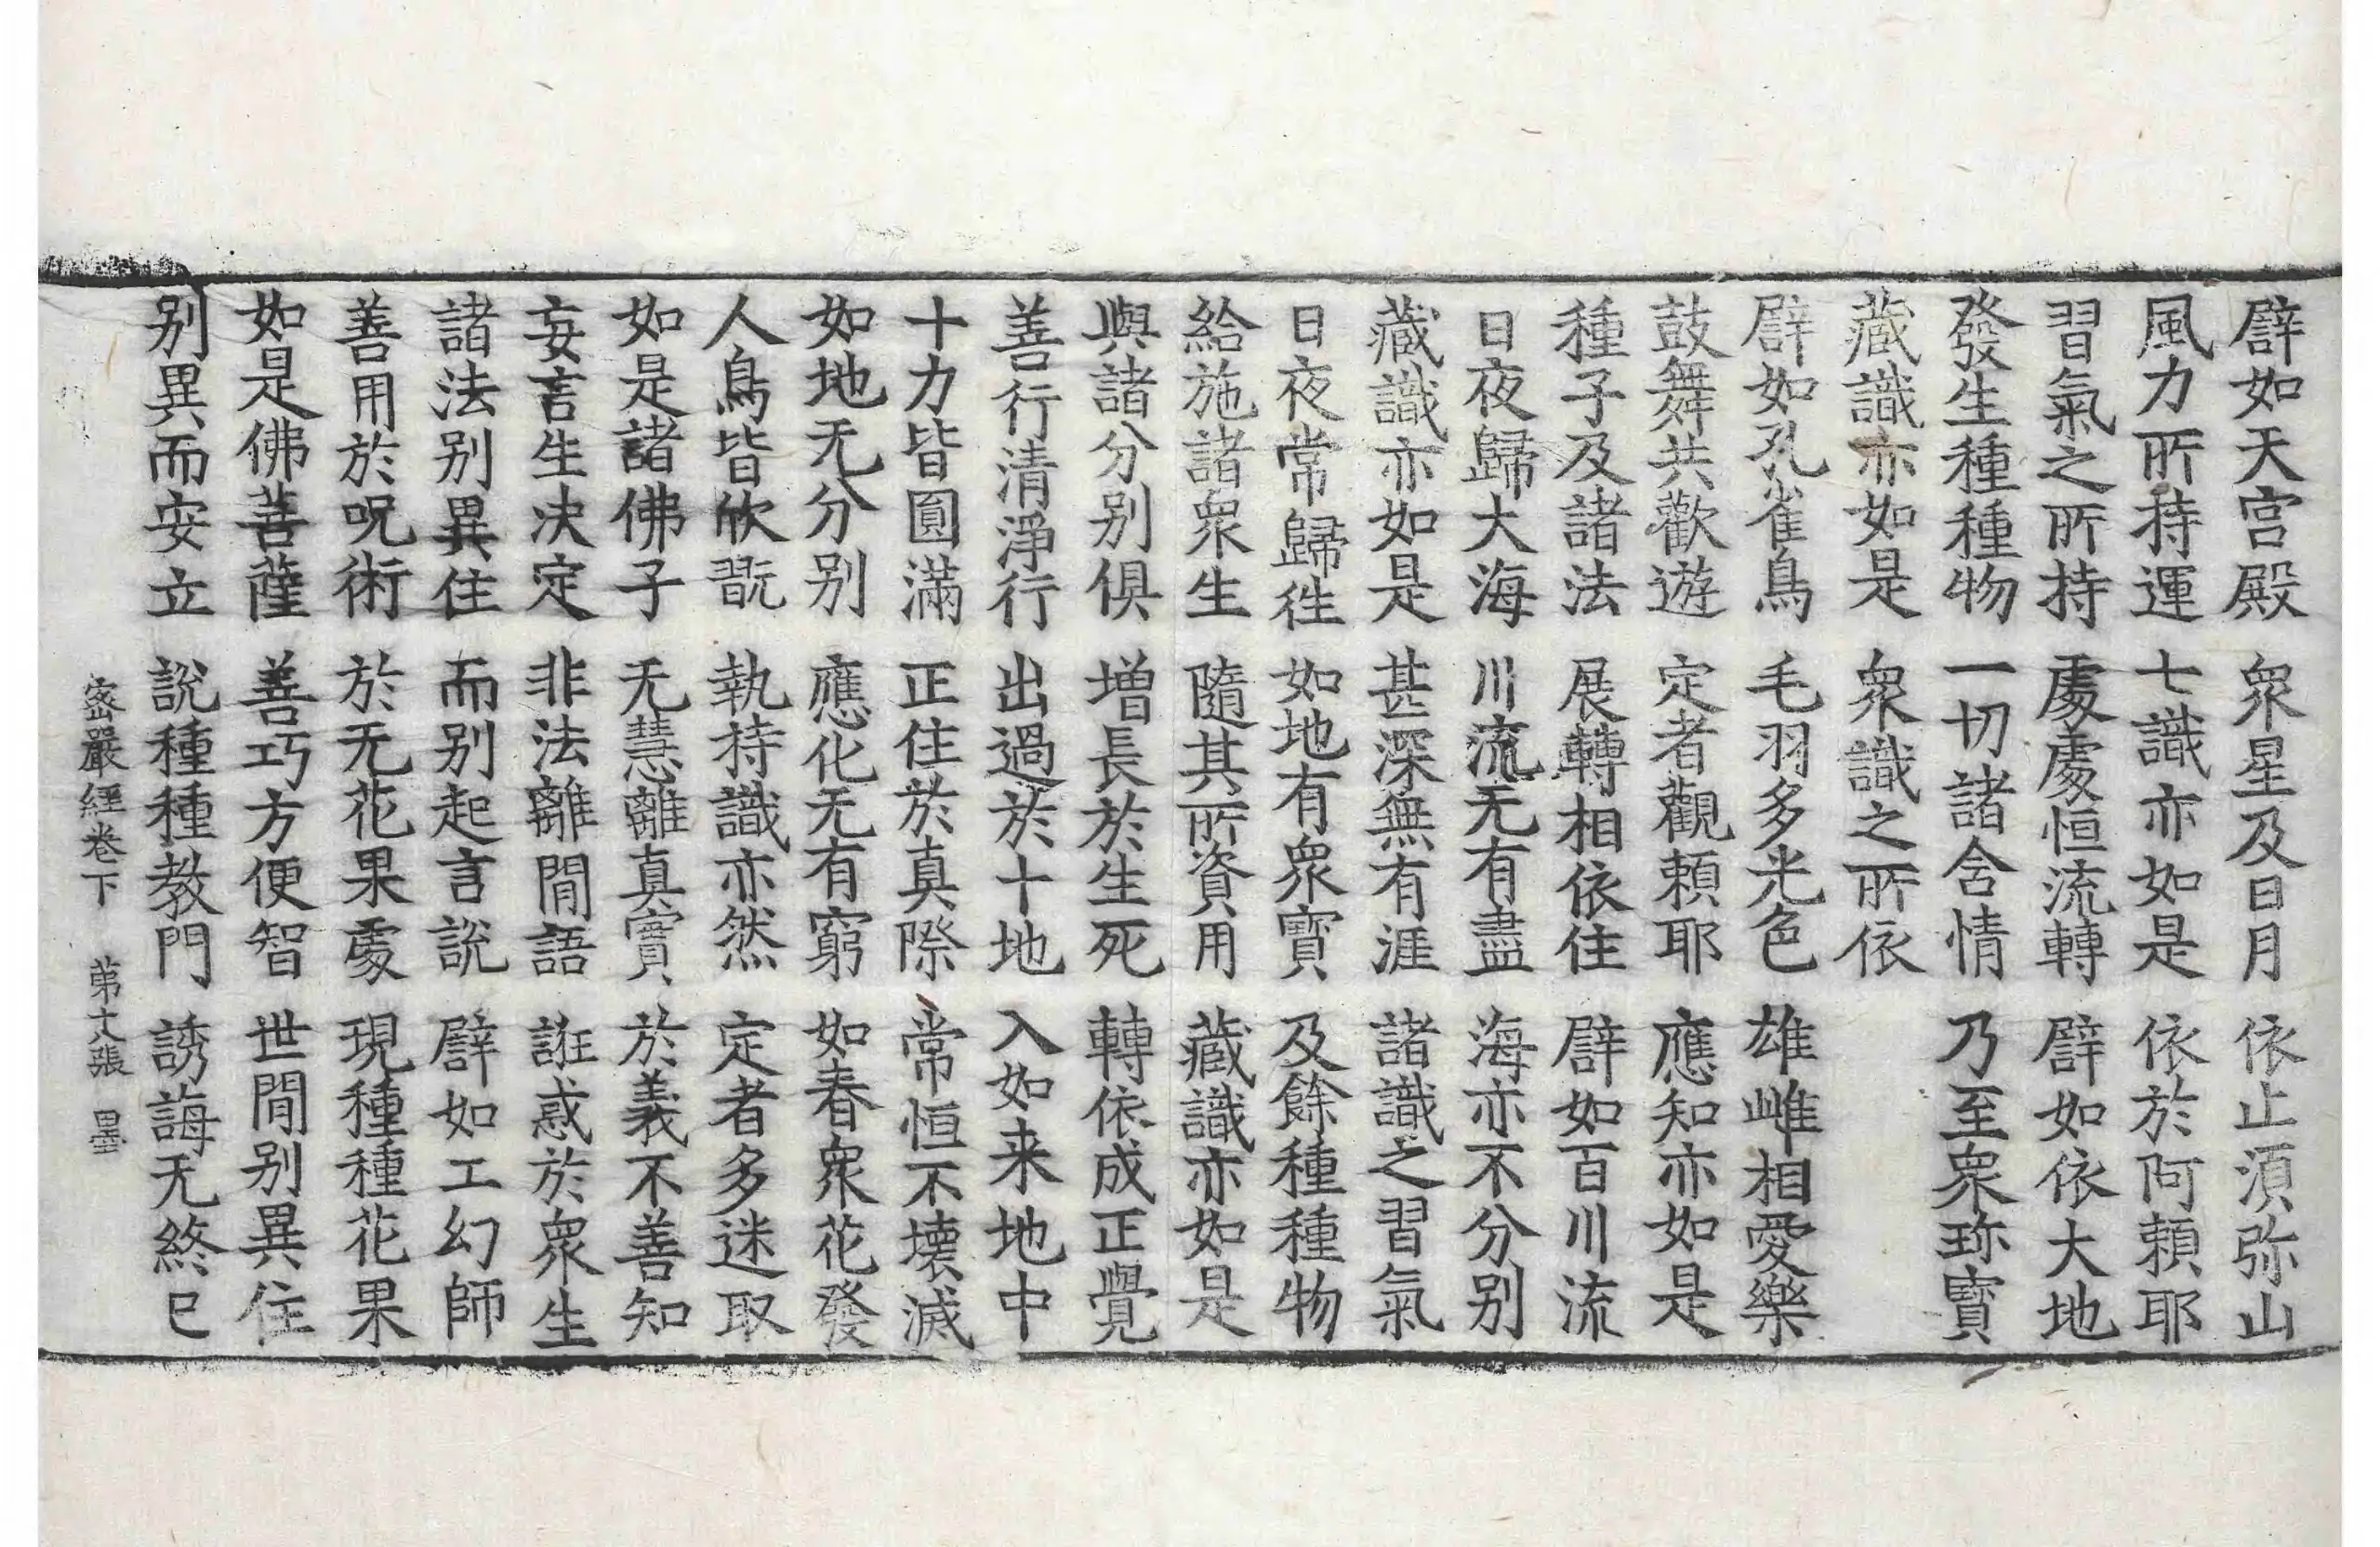 譬如天宮殿　衆星及日月　依止湏弥山
風力所持運　七識亦如是　依於阿賴耶
習氣之所持　處處恒流轉　譬如依大地
發生種種物　一切諸含情　乃至衆珎寶
藏識亦如是　衆識之所依
譬如孔雀鳥　毛羽多光色　雄雌相愛樂
鼓舞共歡遊　定者觀賴耶　應知亦如是
種子及諸法　展轉相依住　譬如百川流
日夜歸大海　川流无有盡　海亦不分别
藏識亦如是　甚深無有涯　諸識之習氣
日夜常歸徃　如地有衆寶　及餘種種物
給施諸衆生　隨其所資用　藏識亦如是
與諸分别俱　增長於生死　轉依成正覺
善行清淨行　出過於十地　入如来地中
十力皆圓滿　正住於真際　常恒不壞滅
如地无分别　應化无有窮　如春衆花發
人鳥皆欣翫　執持識亦然　定者多迷取
如是諸佛子　无慧離真實　於義不善知
妄言生决定　非法離間語　誑惑於衆生
諸法别異住　而别起言說　譬如工幻師
善用於呪術　於无花果處　現種種花果
如是佛菩薩　善巧方便智　世間别異住
别異而安立　說種種教門　誘誨无終已
密嚴經卷下　苐十八張　曇